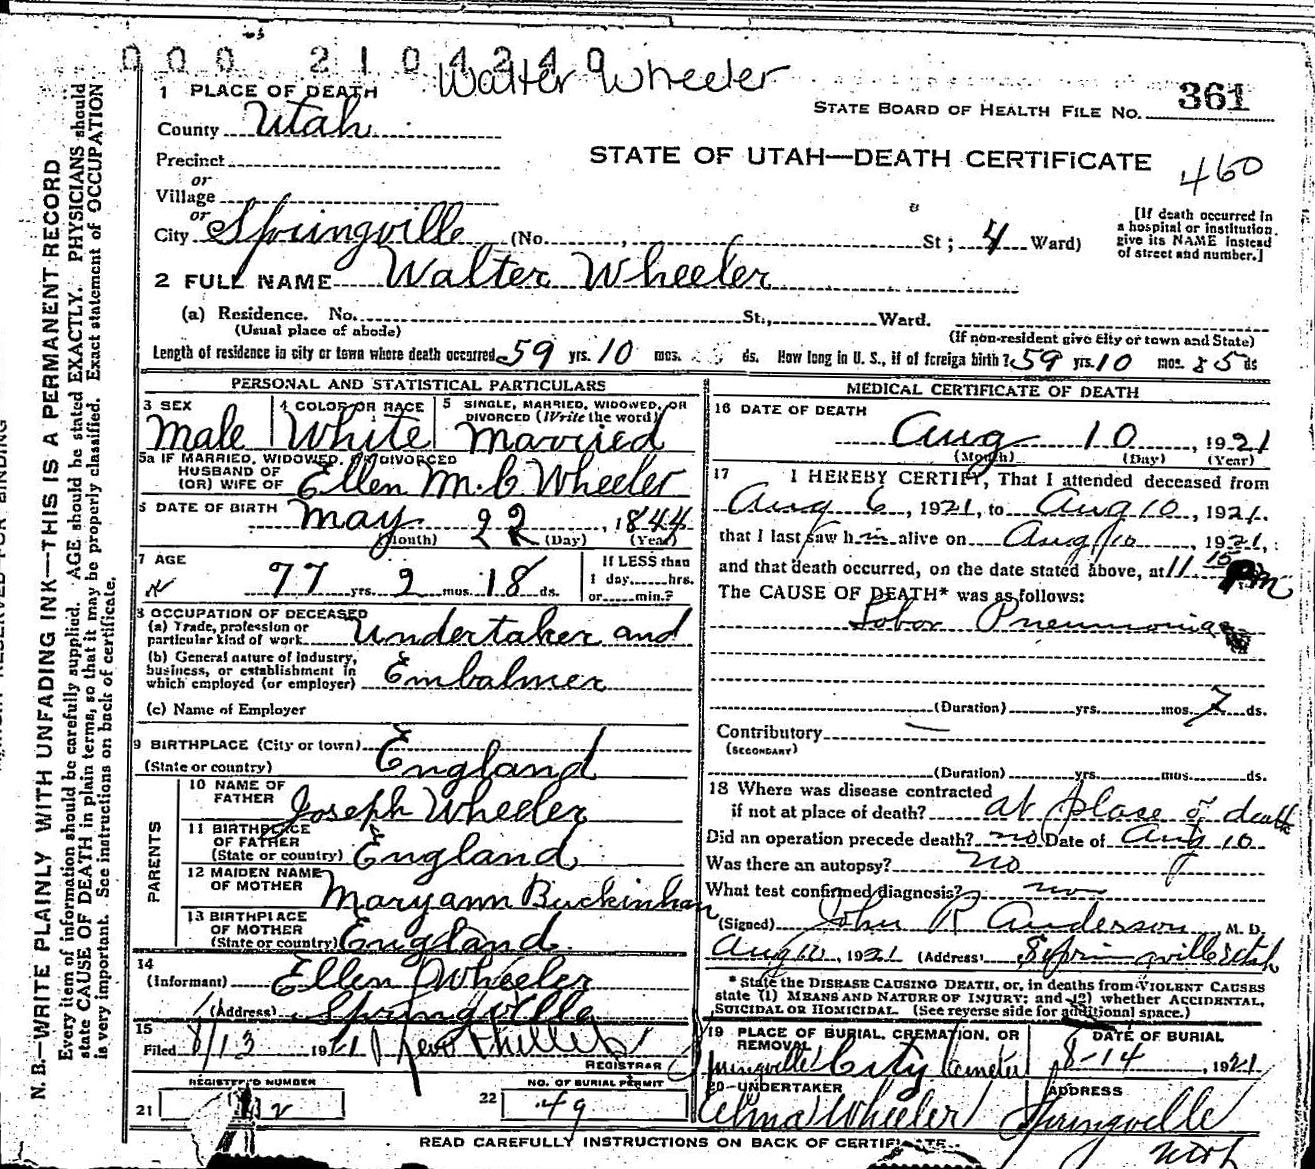 000 2104240
Walter Wheeler
1 PLACE OF DEATH
STATE BOARD OF HEALTH FILE NO. 361
County Utah
STATE OF UTAH—DEATH CERTIFICATE 460
Precinct
or
Village
or
City Springville (No. , St ; 4 Ward)
[If death occurred in
a hospital or institution
give its NAME instead
of street and number.]
2 FULL NAME Walter Wheeler
(a) Residence. No. St., Ward.
(Usual place of abode) (If non-resident give city or town and State)
Length of residence in city or town where death occurred 59 yrs. 10 mos. ds. How long in U. S., if of foreign birth? 59 yrs. 10 mos. 25 ds
PERSONAL AND STATISTICAL PARTICULARS
3 SEX
Male
4 COLOR OR RACE
White
5 SINGLE, MARRIED, WIDOWED, OR
DIVORCED (Write the word)
married
5a IF MARRIED, WIDOWED, OR DIVORCED
HUSBAND OF
(OR) WIFE OF Ellen M. C. Wheeler
6 DATE OF BIRTH May 22, 1844
(Month) (Day) (Year)
7 AGE
77 yrs. 2 mos. 18 ds.
If LESS than
1 day hrs.
or min.?
8 OCCUPATION OF DECEASED
(a) Trade, profession or
particular kind of work Undertaker and
(b) General nature of industry,
business, or establishment in
which employed (or employer) Embalmer
(c) Name of Employer
9 BIRTHPLACE (City or town)
(State or country) England
PARENTS
10 NAME OF
FATHER Joseph Wheeler
11 BIRTHPLACE
OF FATHER
(State or country) England
12 MAIDEN NAME
OF MOTHER Maryann Buckinham
13 BIRTHPLACE
OF MOTHER
(State or country) England
14
(Informant) Ellen Wheeler
(Address) Springville
15
Filed 8/13 1921
REGISTRAR
REGISTERED NUMBER
21
NO. OF BURIAL PERMIT
22 49
MEDICAL CERTIFICATE OF DEATH
16 DATE OF DEATH
Aug 10, 1921
(Month) (Day) (Year)
17 I HEREBY CERTIFY, That I attended deceased from
Aug 6, 1921, to Aug 10, 1921.
that I last saw him alive on Aug 10 1921,
and that death occurred, on the date stated above, at 11 15 Pm
The CAUSE OF DEATH* was as follows:
Lobar Pneumonia
(Duration) yrs. mos. 7 ds.
Contributory
(SECONDARY)
(Duration) yrs. mos. ds.
18 Where was disease contracted
if not at place of death? at place of death
Did an operation precede death? no Date of Aug 10
Was there an autopsy? no
What test confirmed diagnosis?
(Signed) John R Anderson M. D.
Aug 10, 1921 (Address) Springville Utah
* State the DISEASE CAUSING DEATH, or, in deaths from VIOLENT CAUSES
state (1) MEANS AND NATURE OF INJURY; and (2) whether ACCIDENTAL,
SUICIDAL OR HOMICIDAL. (See reverse side for additional space.)
19 PLACE OF BURIAL, CREMATION, OR
REMOVAL
Springville City Cemetery
DATE OF BURIAL
8-14, 1921
20 UNDERTAKER
Alma Wheeler
ADDRESS
Springville
Utah
READ CAREFULLY INSTRUCTIONS ON BACK OF CERTIFICATE.
N. B.—WRITE PLAINLY WITH UNFADING INK—THIS IS A PERMANENT RECORD
Every item of information should be carefully supplied. AGE should be stated EXACTLY. PHYSICIANS should
state CAUSE OF DEATH in plain terms, so that it may be properly classified. Exact statement of OCCUPATION
is very important. See instructions on back of certificate.